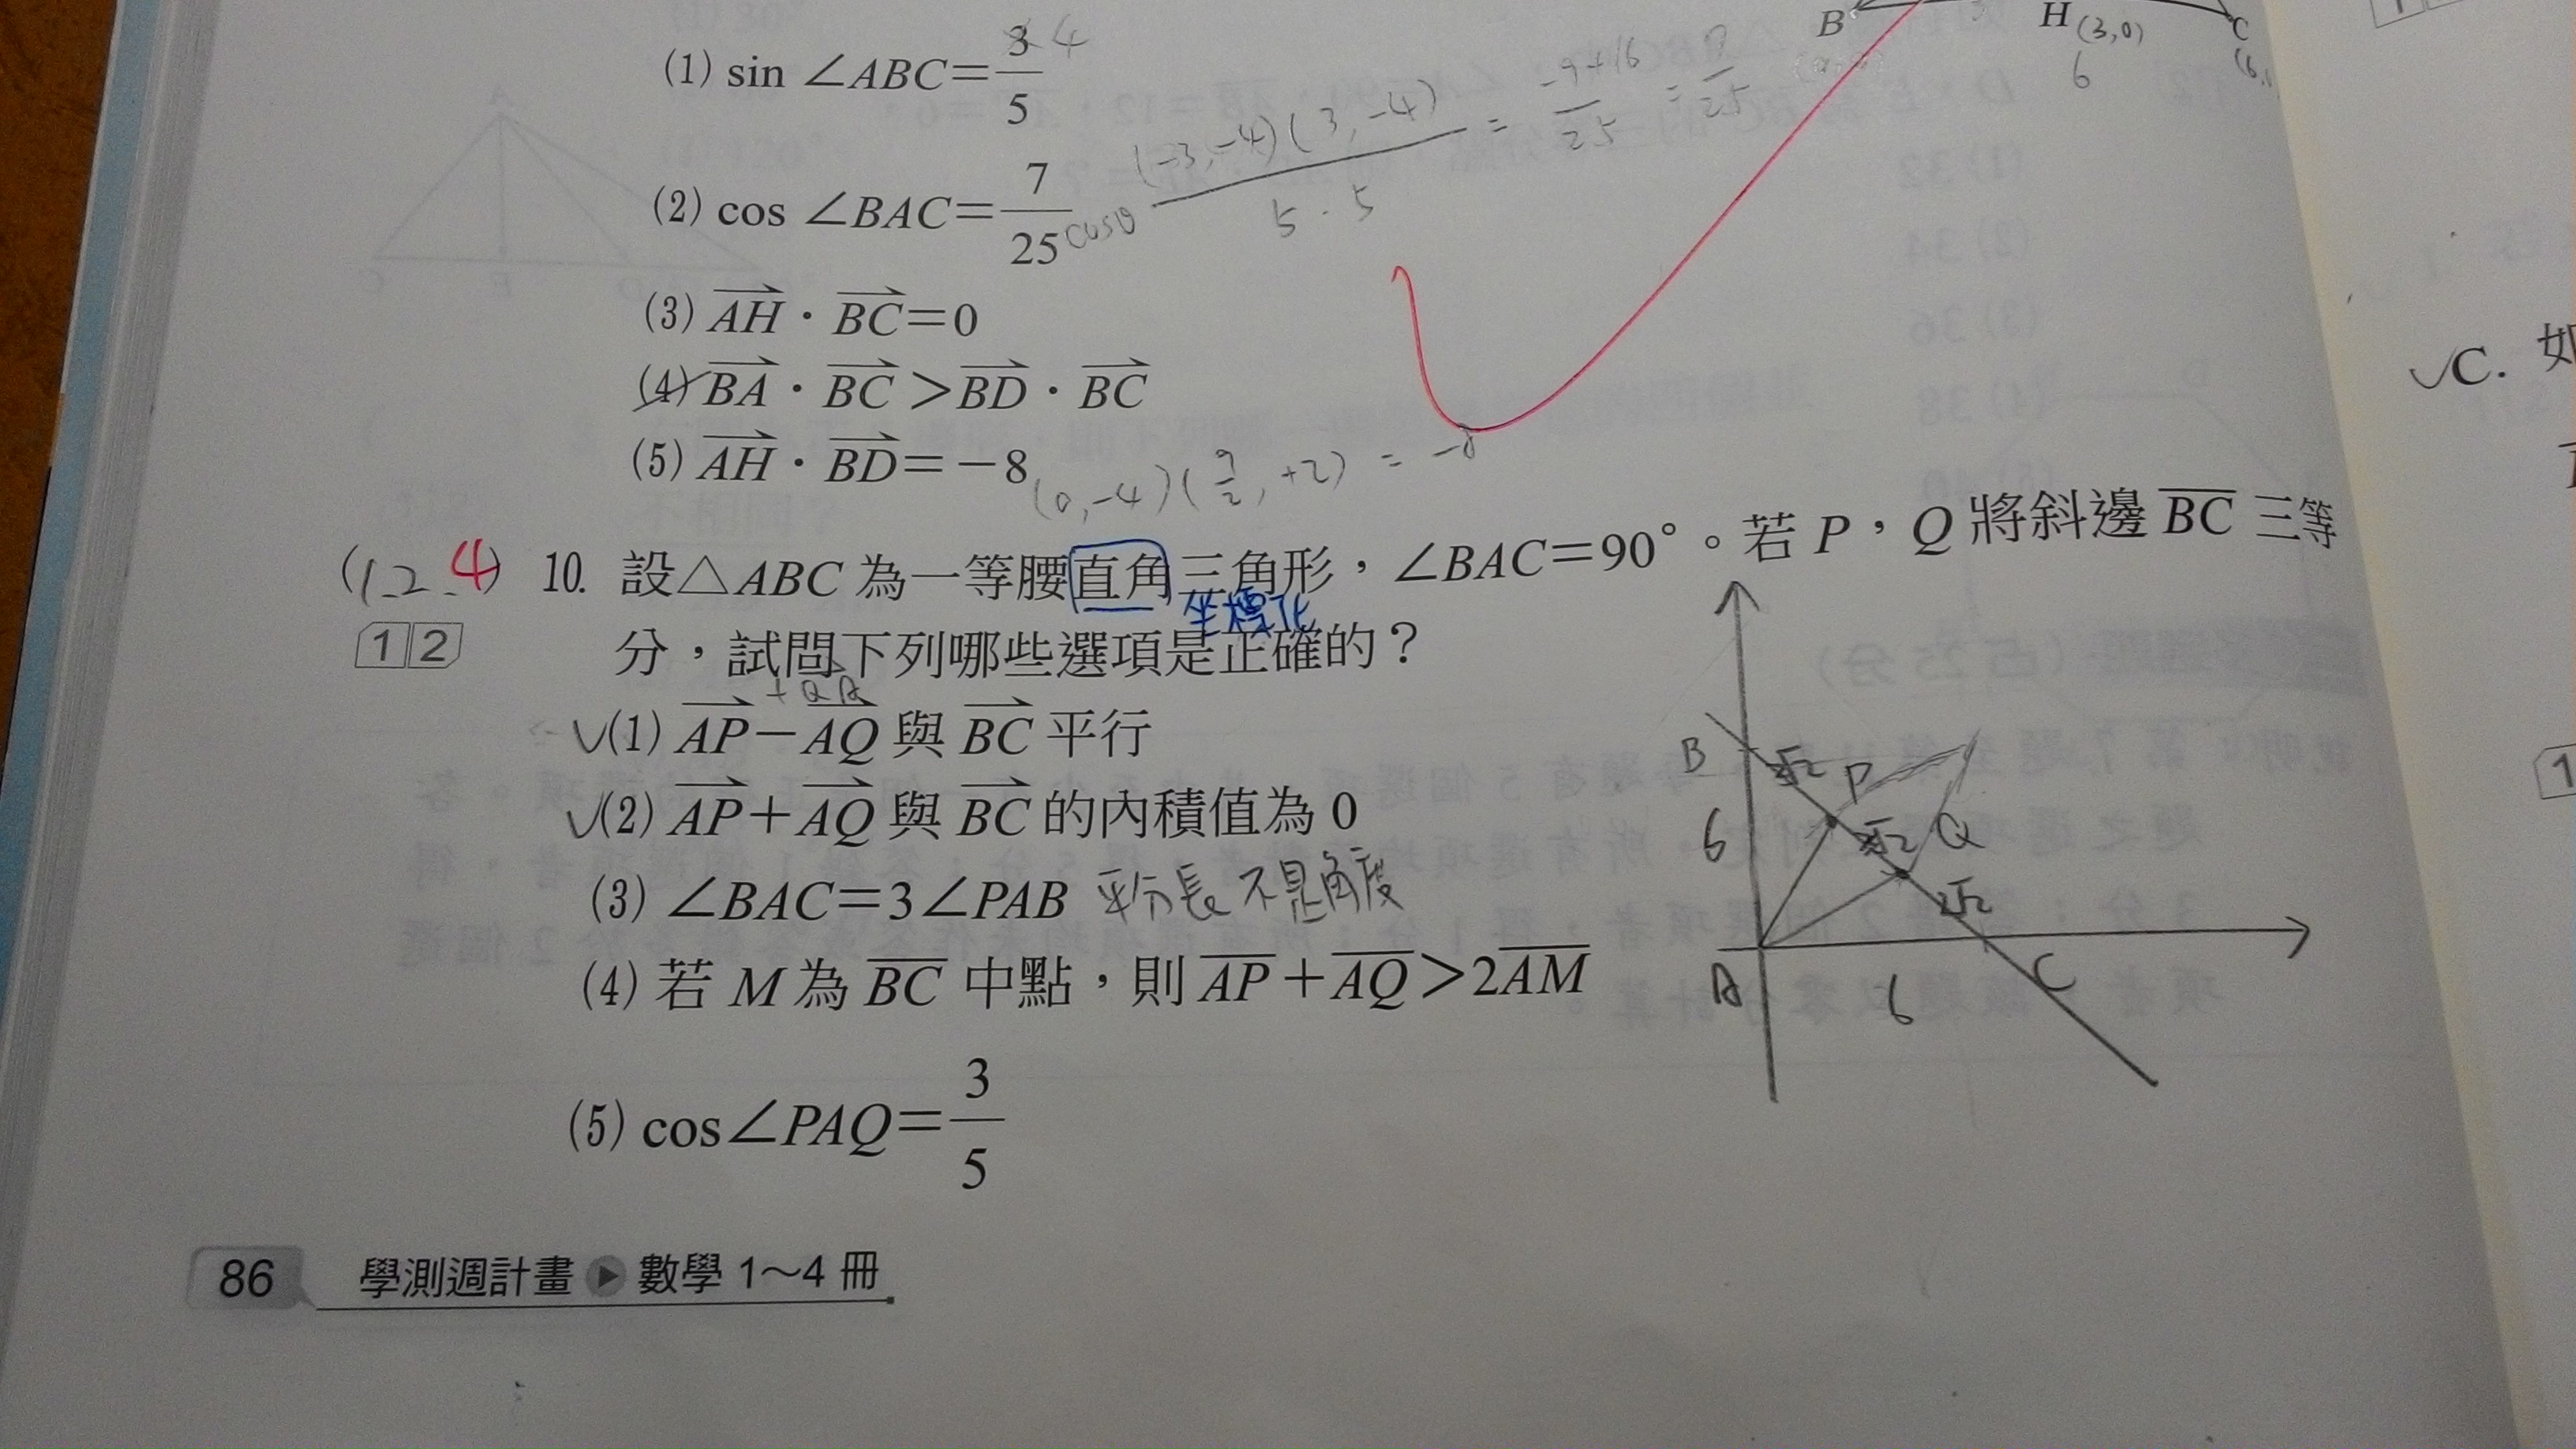 B H(3,0) C
6
(1) sin ∠ABC=3/5 4
(2) cos ∠BAC=7/25 cosθ (-3,-4)(3,-4)/5·5 = -9+16/25 = 7/25
(3) AH·BC=0
(4) BA·BC>BD·BC
(5) AH·BD=-8 (0,-4)(9/2,+2) = -8
✓C. 如
(1.2.4) 10. 設△ABC為一等腰直角三角形，∠BAC=90°。若P，Q將斜邊BC三等
坐標化
12 分，試問下列哪些選項是正確的？
+QA
✓(1) AP-AQ 與 BC 平行
✓(2) AP+AQ 與 BC 的內積值為 0
(3) ∠BAC=3∠PAB 平分長 不是角度
(4) 若 M 為 BC 中點，則 AP+AQ>2AM
(5) cos∠PAQ=3/5
B 2√2 P
6 2√2 Q
2√2
A 6 C
86 學測週計畫 ▶ 數學 1～4 冊